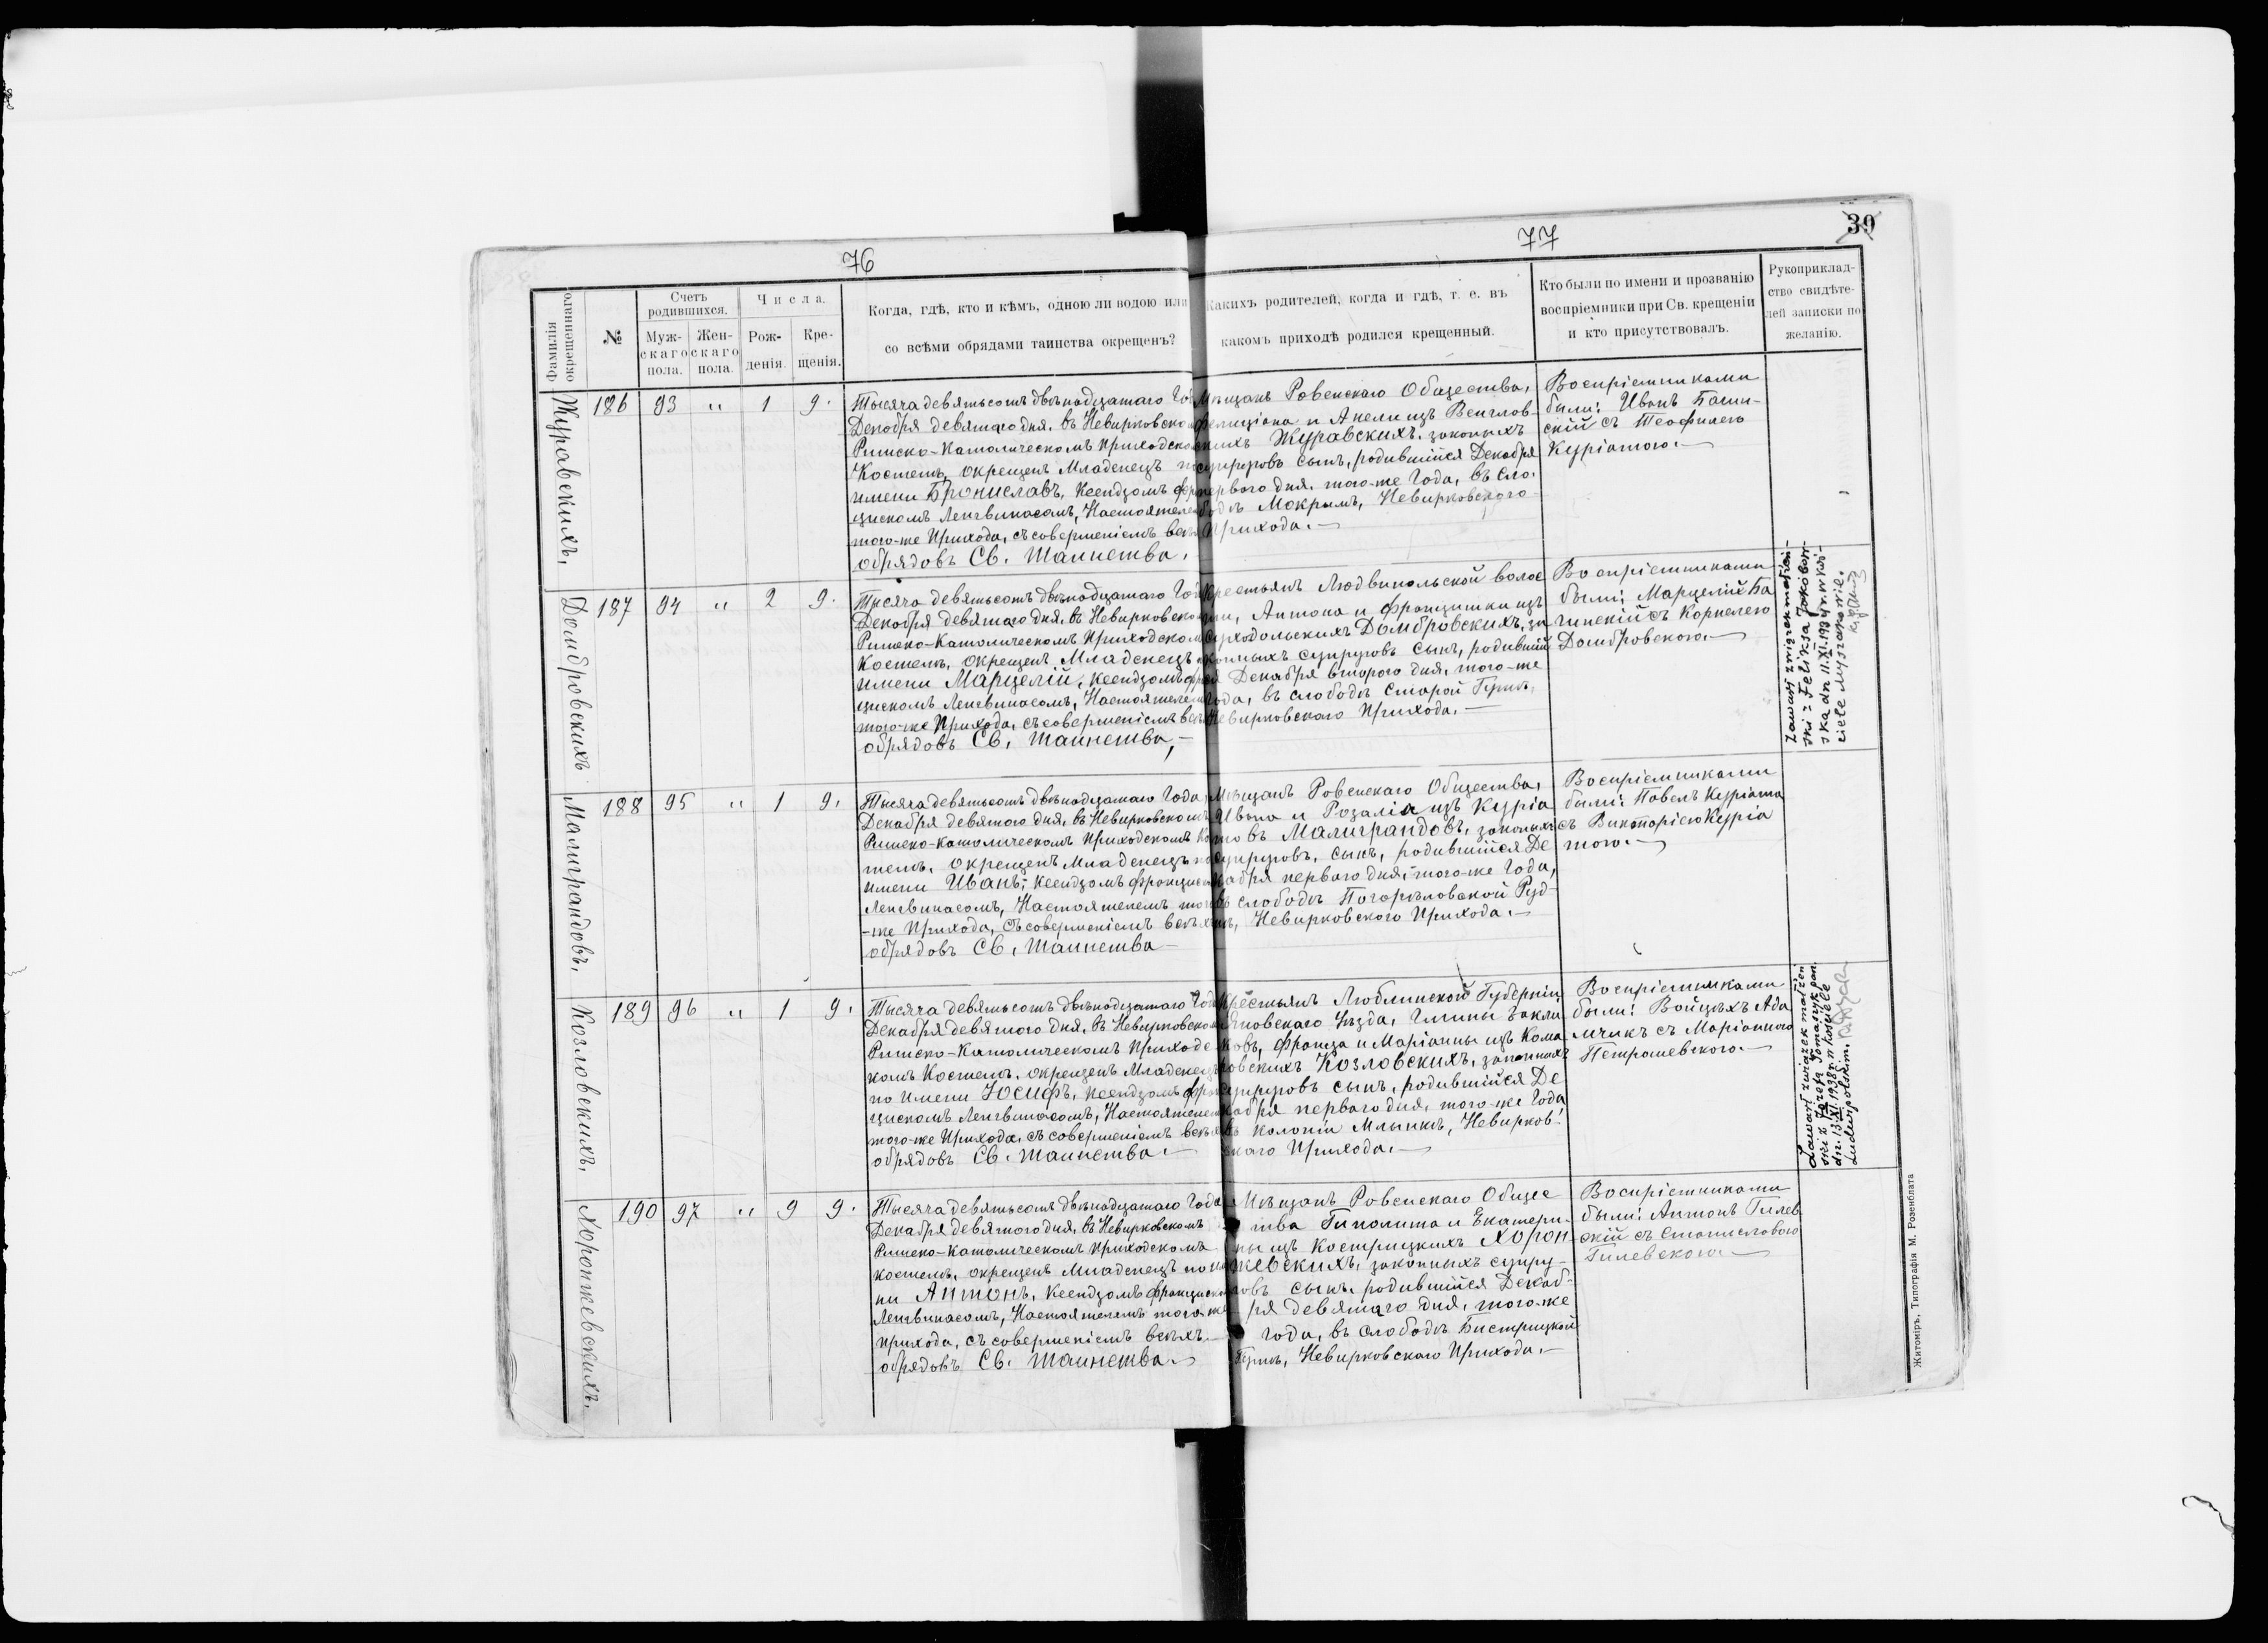 76
77
39
Фамилія
окрещеннаго
№
Счетъ
родившихся.
Муж-
скаго
пола.
Жен-
скаго
пола.
Числа.
Рож-
денія.
Кре-
щенія.
Когда, гдѣ, кто и кѣмъ, одною ли водою или
со всѣми обрядами таинства окрещенъ?
Какихъ родителей, когда и гдѣ, т. е. въ
какомъ приходѣ родился крещенный.
Кто были по имени и прозванію
воспріемники при Св. крещеніи
и кто присутствовалъ.
Рукоприклад-
ство свидѣте-
лей записки по
желанію.
Журавскихъ.
186 93 " 1 9.
Тысяча девятьсотъ двѣнадцатаго Го
Декабря девятаго дня, въ Невирковско
Римско-Католическомъ Приходско
Костелѣ, окрещенъ Младенецъ по
имени Брониславъ, Ксендзомъ фран
цискомъ Ленгвинасомъ, Настоятеле
того-же Прихода, съ совершеніемъ всѣ
обрядовъ Св. Таинства.
Мѣщанъ Ровенскаго Общества,
Фелиціана и Анели изъ Венглов-
скихъ Журавскихъ, законныхъ
супруговъ сынъ, родившійся Декабря
перваго дня, того-же Года, въ Сло-
бодѣ Мокрымъ, Невирковскаго
Прихода.—
Воспріемниками
были: Иванъ Баги-
скій съ Теофилею
Куріатою.—
Домбровскихъ
187 94 " 2 9.
Тысяча девятьсотъ двѣнадцатаго Го
Декабря девятаго дня, въ Невирковско
Римско-Католическомъ Приходском
Костелѣ, окрещенъ Младенецъ
имени Марцелій, Ксендзомъ фран
цискомъ Ленгвинасомъ, Настоятелем
того-же Прихода, съ совершеніемъ всѣ
обрядовъ Св. Таинства,—
Крестьянъ Людвипольской волос
ти, Антона и Францишки изъ
Суходольскихъ Домбровскихъ, за
конныхъ супруговъ сынъ, родившій
ся Декабря второго дня, того-же
Года, въ слободѣ Старой Гутѣ,
Невирковскаго Прихода.—
Воспріемниками
были: Марцелій Ба
гинскій съ Корнелею
Домбровскою.—
Zawarł związek małżeń-
ski z Feliksą Jakóbow-
ską dn 11.XI.1934 r. w koś-
ciele wyszakowie.
Малиграндовъ.
188 95 " 1 9.
Тысяча девятьсотъ двѣнадцатаго Года
Декабря девятаго дня, въ Невирковскомъ
Римско-Католическомъ Приходскомъ Кос
телѣ, окрещенъ Младенецъ по
имени Иванъ, Ксендзомъ Францис
Ленгвинасомъ, Настоятелемъ того
-же Прихода, съ совершеніемъ всѣхъ
обрядовъ Св. Таинства—
Мѣщанъ Ровенскаго Общества,
Ивана и Розаліи изъ Куріа
товъ Малиграндовъ, законныхъ
супруговъ, сынъ, родившійся Де
кабря перваго дня, того-же Года,
въ слободѣ Погорѣловской Руд-
нѣ, Невирковскаго Прихода.—
Воспріемниками
были: Павелъ Куріата
съ Викторіею Куріа
тою.—
Козловскихъ.
189 96 " 1 9.
Тысяча девятьсотъ двѣнадцатаго Года
Декабря девятаго дня, въ Невирковском
Римско-Католическомъ Приходс
комъ Костелѣ, окрещенъ Младенецъ
по имени Юсифъ, Ксендзомъ фран
цискомъ Ленгвинасомъ, Настоятелем
того-же Прихода, съ совершеніемъ всѣхъ
обрядовъ Св. Таинства.—
Крестьянъ Люблинской Губерніи,
Яновскаго Уѣзда, Гмины Закли
ковъ, Франца и Маріанны изъ Кома
ровскихъ Козловскихъ, законныхъ
супруговъ сынъ, родившійся Де
кабря перваго дня, того-же Года,
въ колоніи Млынкѣ, Невирков-
скаго Прихода.—
Воспріемниками
были: Войцѣхъ Ада
мчикъ съ Маріанною
Петрошевскою.—
Zawarł związek małżeń
ski z Józefą Tomaszyk pan.
dn. 13.XI.1938 r. w kościele
Ludwipolskim.
Хоронжевскихъ.
190 97 " 9 9.
Тысяча девятьсотъ двѣнадцатаго Года
Декабря девятаго дня, въ Невирковскомъ
Римско-Католическомъ Приходскомъ
костелѣ, окрещенъ Младенецъ по име
ни Антонъ, Ксендзомъ Францискомъ
Ленгвинасомъ, Настоятелемъ того-же
Прихода, съ совершеніемъ всѣхъ—
обрядовъ Св. Таинства.—
Мѣщанъ Ровенскаго Общес
тва Гиполита и Екатери-
ны изъ Кострицкихъ Хорон-
жевскихъ, законныхъ супру-
говъ сынъ, родившійся Декаб-
ря девятаго дня, того-же
Года, въ слободѣ Бистрицкой
Гутѣ, Невирковскаго Прихода.—
Воспріемниками
были: Антонъ Гилев
скій съ Станиславою
Гилевскою.—
Житоміръ, Типографія М. Розенблата